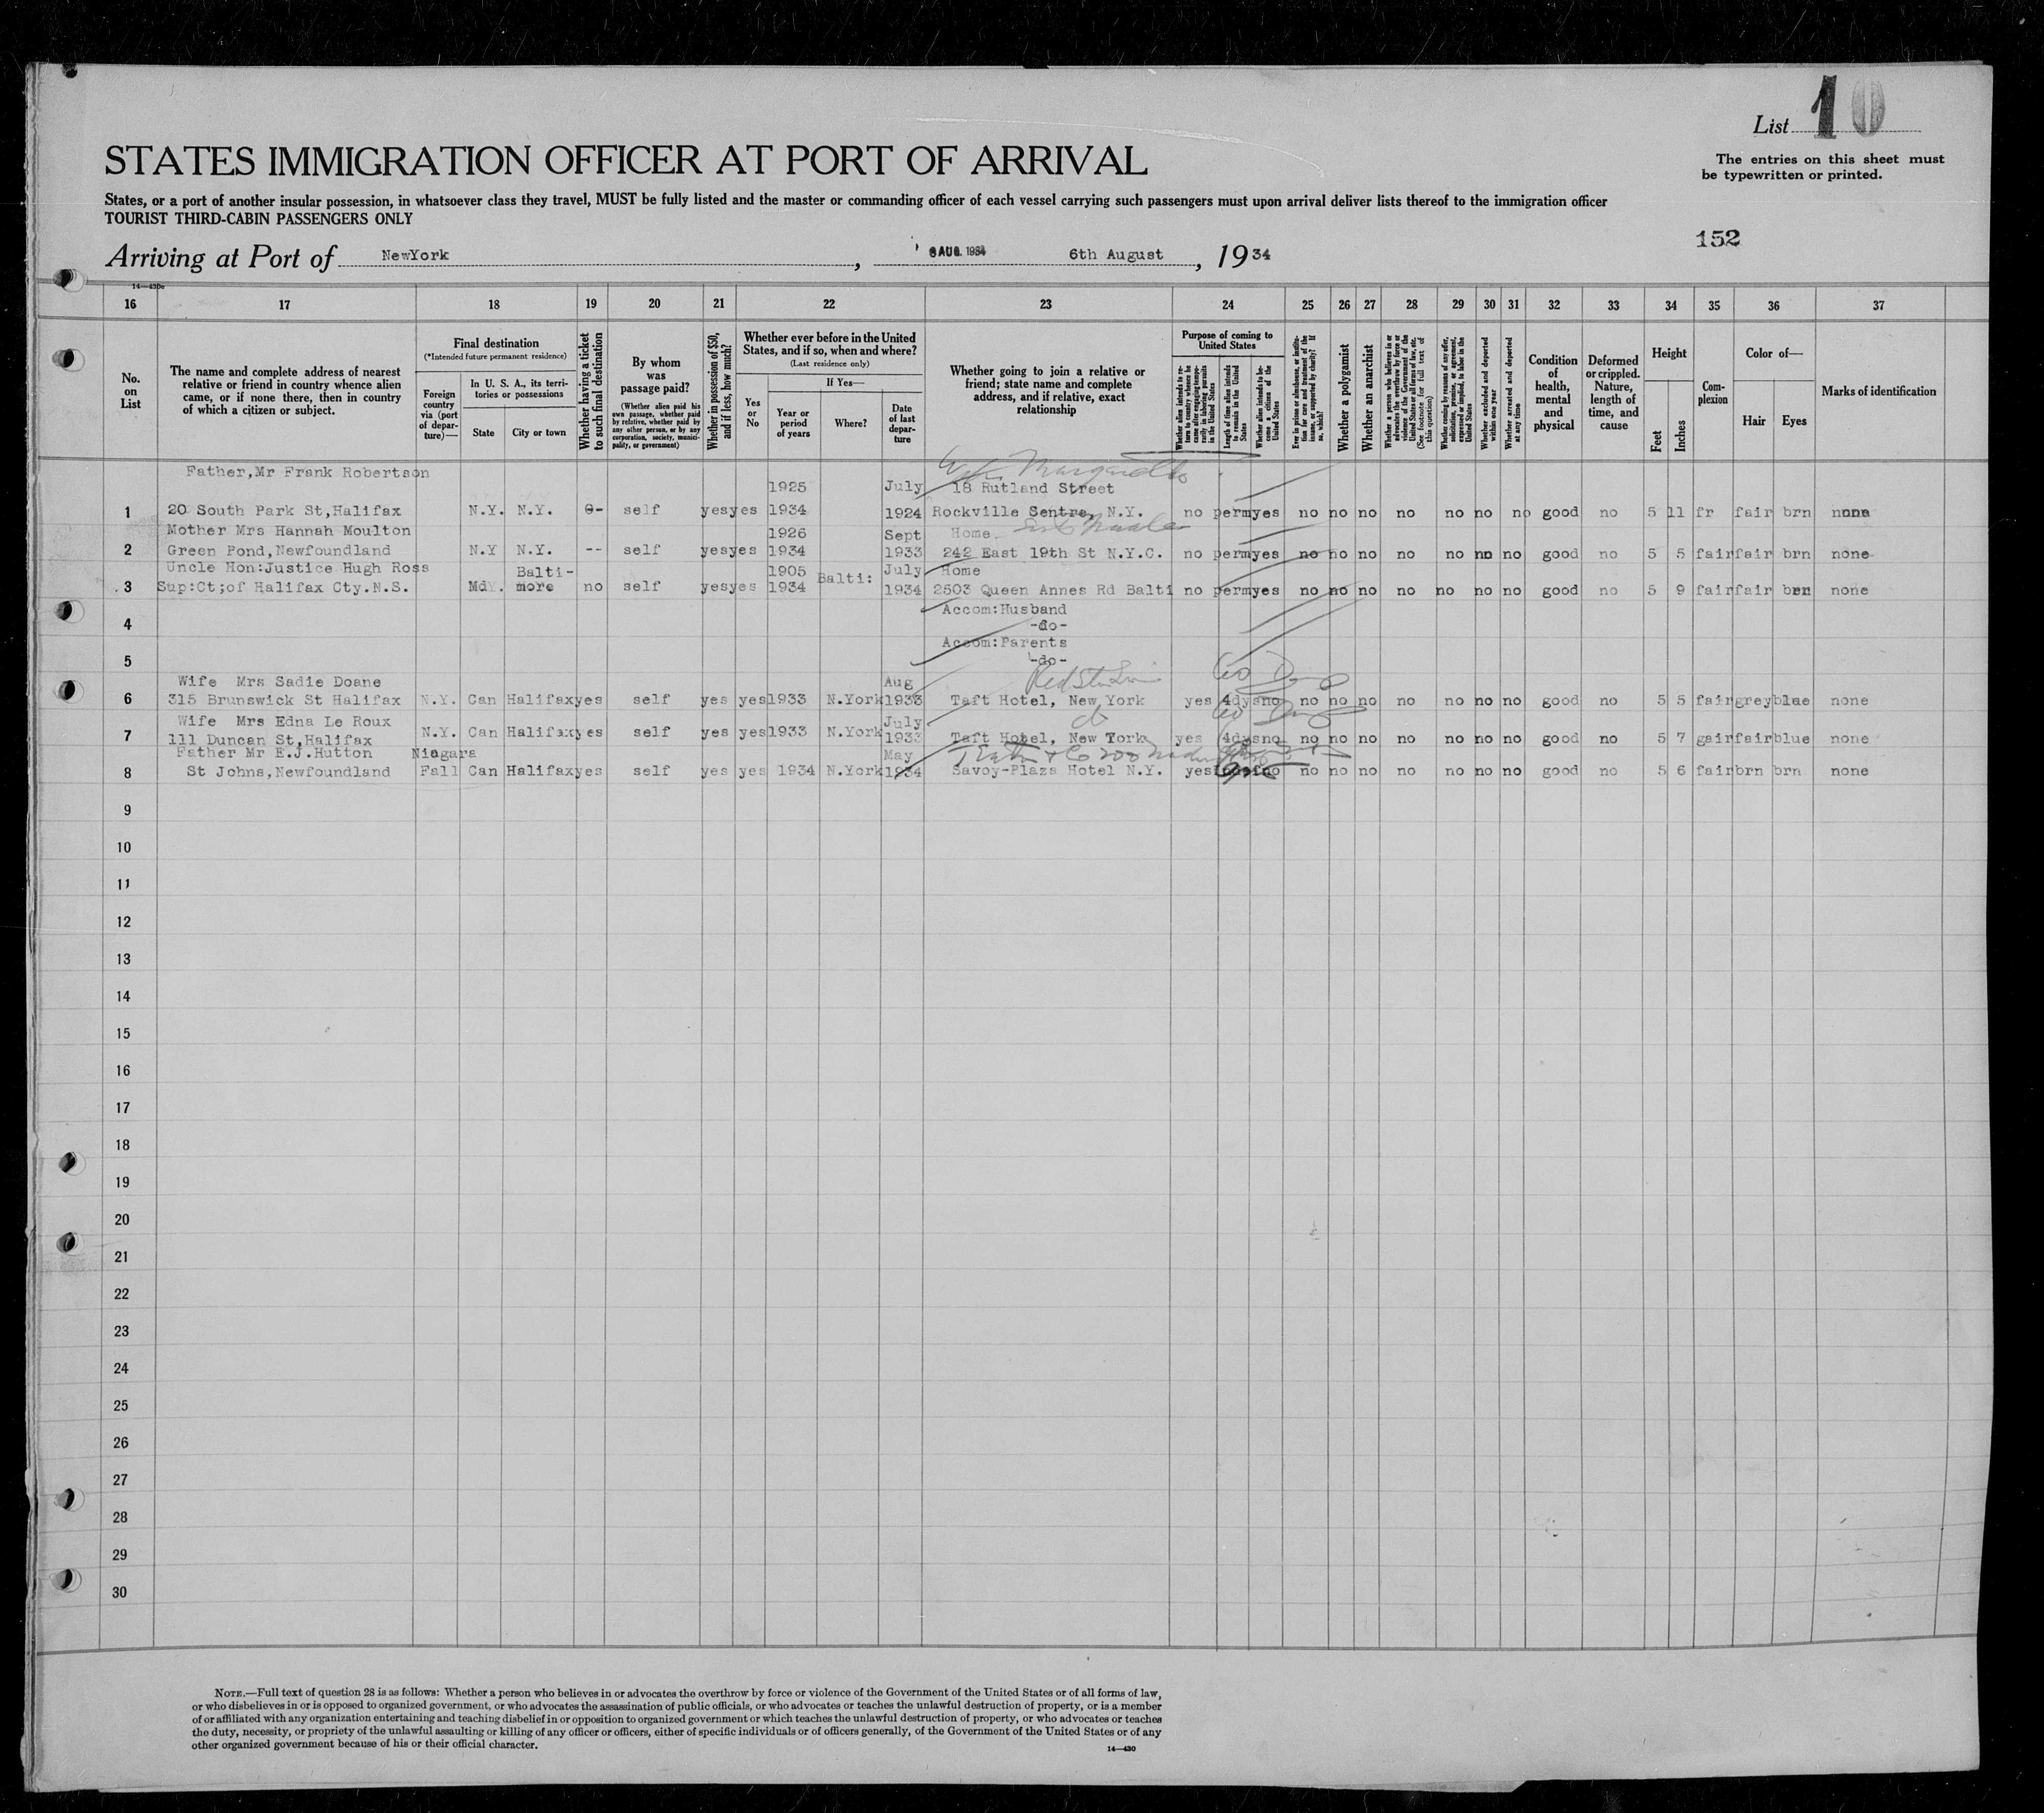 List 10
The entries on this sheet must
be typewritten or printed.
STATES IMMIGRATION OFFICER AT PORT OF ARRIVAL
States, or a port of another insular possession, in whatsoever class they travel, MUST be fully listed and the master or commanding officer of each vessel carrying such passengers must upon arrival deliver lists thereof to the immigration officer
TOURIST THIRD-CABIN PASSENGERS ONLY
152
Arriving at Port of NewYork, 6 AUG. 1934 6th August, 1934
14—430c
16 17 18 19 20 21 22 23 24 25 26 27 28 29 30 31 32 33 34 35 36 37
No. on List
The name and complete address of nearest
relative or friend in country whence alien
came, or if none there, then in country
of which a citizen or subject.
Final destination
(*Intended future permanent residence)
Foreign country via (port of departure)—
In U. S. A., its territories or possessions
State
City or town
Whether having a ticket to such final destination
By whom was passage paid?
(Whether alien paid his own passage, whether paid by relative, whether paid by any other person, or by any corporation, society, municipality, or government)
Whether in possession of $50, and if less, how much?
Whether ever before in the United States, and if so, when and where?
(Last residence only)
Yes or No
If Yes—
Year or period of years
Where?
Date of last departure
Whether going to join a relative or
friend; state name and complete
address, and if relative, exact
relationship
Purpose of coming to United States
Whether alien intends to return to country whence he came after engaging temporarily in laboring pursuits in the United States
Length of time alien intends to remain in the United States
Whether alien intends to become a citizen of the United States
Ever in prison or almshouse, or institution for care and treatment of the insane, or supported by charity? If so, which?
Whether a polygamist
Whether an anarchist
Whether a person who believes in or advocates the overthrow by force or violence of the Government of the United States or all forms of law, etc. (See footnote for full text of this question)
Whether coming by reason of any offer, solicitation, promise, or agreement, expressed or implied, to labor in the United States
Whether excluded and deported within one year
Whether arrested and deported at any time
Condition of health, mental and physical
Deformed or crippled. Nature, length of time, and cause
Height
Feet
Inches
Complexion
Color of—
Hair
Eyes
Marks of identification
Father,Mr Frank Robertson 1925 July Wife 18 Rutland Street
1 20 South Park St,Halifax N.Y. N.Y. 0- self yes yes 1934 1924 Rockville Sentre, N.Y. no perm yes no no no no no no no good no 5 11 fr fair brn none
Mother Mrs Hannah Moulton 1926 Sept Home
2 Green Pond,Newfoundland N.Y N.Y. -- self yes yes 1934 1933 242 East 19th St N.Y.C. no perm yes no no no no no no no good no 5 5 fair fair brn none
Uncle Hon:Justice Hugh Ross Balti- 1905 Balti: July Home
3 Sup:Ct;of Halifax Cty.N.S. Md. more no self yes yes 1934 1934 2503 Queen Annes Rd Balti no perm yes no no no no no no no good no 5 9 fair fair brn none
Accom:Husband
4 -do-
Accom:Parents
5 -do-
Wife Mrs Sadie Doane Aug Red Star Line
6 315 Brunswick St Halifax N.Y. Can Halifax yes self yes yes 1933 N.York 1933 Taft Hotel, New York yes 4dys no no no no no no no no good no 5 5 fair grey blue none
Wife Mrs Edna Le Roux July
7 111 Duncan St,Halifax N.Y. Can Halifax yes self yes yes 1933 N.York 1933 Taft Hotel, New York yes 4dys no no no no no no no no good no 5 7 gair fair blue none
Father Mr E.J.Hutton Niagara May
8 St Johns,Newfoundland Fall Can Halifax yes self yes yes 1934 N.York 1934 Savoy-Plaza Hotel N.Y. yes no no no no no no no no good no 5 6 fair brn brn none
9
10
11
12
13
14
15
16
17
18
19
20
21
22
23
24
25
26
27
28
29
30
NOTE.—Full text of question 28 is as follows: Whether a person who believes in or advocates the overthrow by force or violence of the Government of the United States or of all forms of law,
or who disbelieves in or is opposed to organized government, or who advocates the assassination of public officials, or who advocates or teaches the unlawful destruction of property, or is a member
of or affiliated with any organization entertaining and teaching disbelief in or opposition to organized government or which teaches the unlawful destruction of property, or who advocates or teaches
the duty, necessity, or propriety of the unlawful assaulting or killing of any officer or officers, either of specific individuals or of officers generally, of the Government of the United States or of any
other organized government because of his or their official character.
14—430